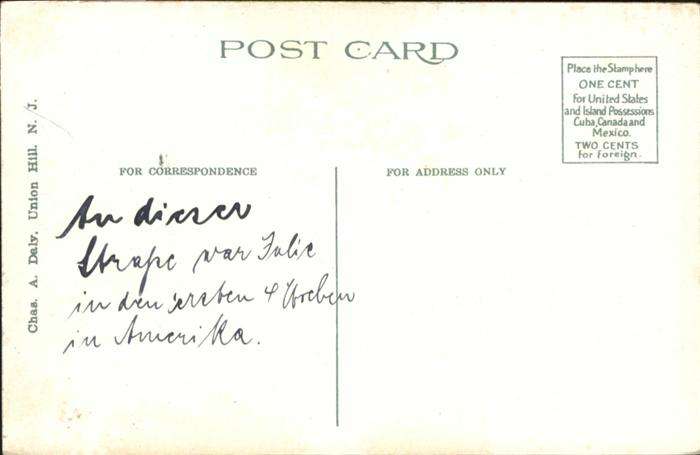 POST CARD
Place the Stamp here
ONE CENT
For United States
and Island Possessions
Cuba, Canada and
Mexico.
TWO CENTS
for Foreign.
Chas. A. Daly, Union Hill, N. J.
FOR CORRESPONDENCE
FOR ADDRESS ONLY
An dieser
Straße war Julie
in den ersten 4 Wochen
in Amerika.